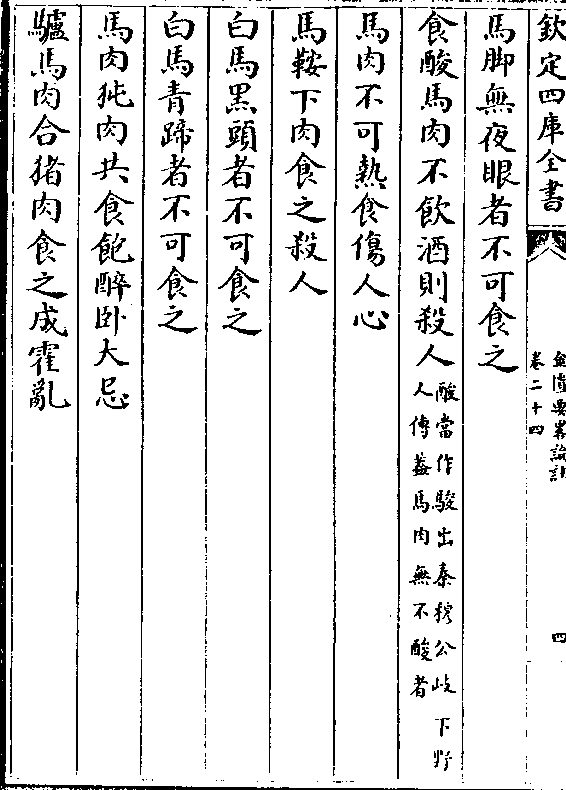 欽定四庫全書
金匱要畧論註
卷二十四
四
馬脚無夜眼者不可食之
食酸馬肉不飲酒則殺人酸當作駿出秦穆公岐下野
人傳葢馬肉無不酸者
馬肉不可熱食傷人心
馬鞍下肉食之殺人
白馬黑頭者不可食之
白馬青蹄者不可食之
馬肉㹠肉共食飽醉卧大忌
驢馬肉合猪肉食之成霍亂